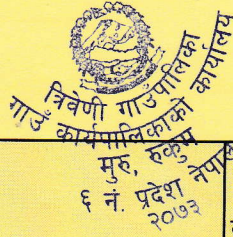 त्रिवेणी गाउँपालिका
गाउँ कार्यपालिकाको कार्यालय
मुरु, रुकुम
६ नं. प्रदेश नेपाल
२०७३